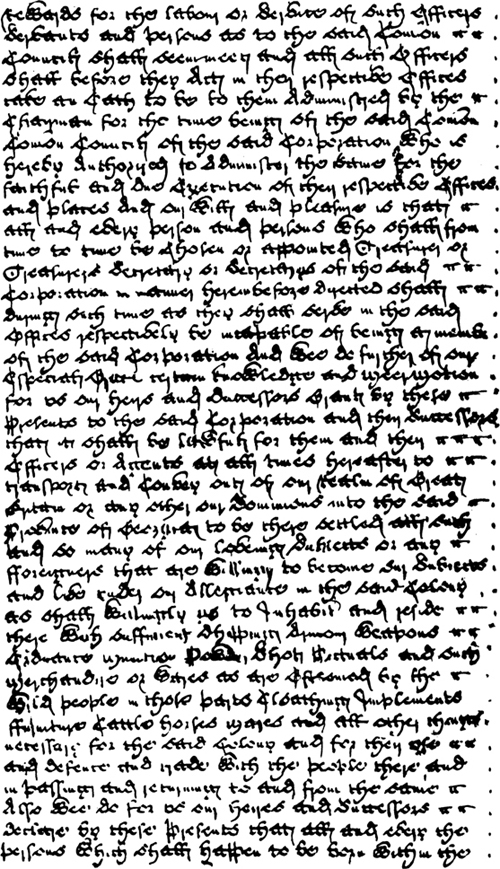 rewards for the labour or service of such Officers
servants and persons as to the said Comon
Councill shall seem meet and all such Officers
shall before they act in their respective Offices
take an Oath to be to them Administred by the
Chairman for the time being of the said Comon
Comon Councill of the said Corporation Who is
hereby Authorised to Administer the same for the
faithfull and due Execution of their respective Offices
and places And our Will and pleasure is that
all and every person and persons Who shall from
time to time be Chosen or appointed Treasurer or
Treasurers Secretary or Secretarys of the said
Corporation in manner hereinbefore directed shall
during such time as they shall serve in the said
Offices respectively be incapable of being a member
of the said Corporation And Wee do further of our
Especial Grace certain knowledge and meer motion
for us our heirs and Successors Grant by these
Presents to the said Corporation and their Successors
that it shall be lawfull for them and their
Officers or Agents at all times hereafter to
transport and Convey out of our Realm of Great
Britain or any other our Dominions into the said
Province of Georgia to be there settled such
and so many of our loveing Subjects or any
fforeigners that are Willing to become our Subjects
and live under our Allegiance in the said Colony
as shall Willingly go to Inhabit and reside
there With sufficient Shipping Armour Weapons
Ordnance munition Powder Shott Victuals and such
Merchandize or Wares as are Esteemed by the
Wild people in those parts Cloathing Implements
ffurniture Cattle horses mares and all other things
necessary for the said Colony and for their use
and defence and trade With the people there and
in passing and returning to and from the same
Also Wee do for us our heires and Successors
declare by these Presents that all and every the
persons Which shall happen to be born within the